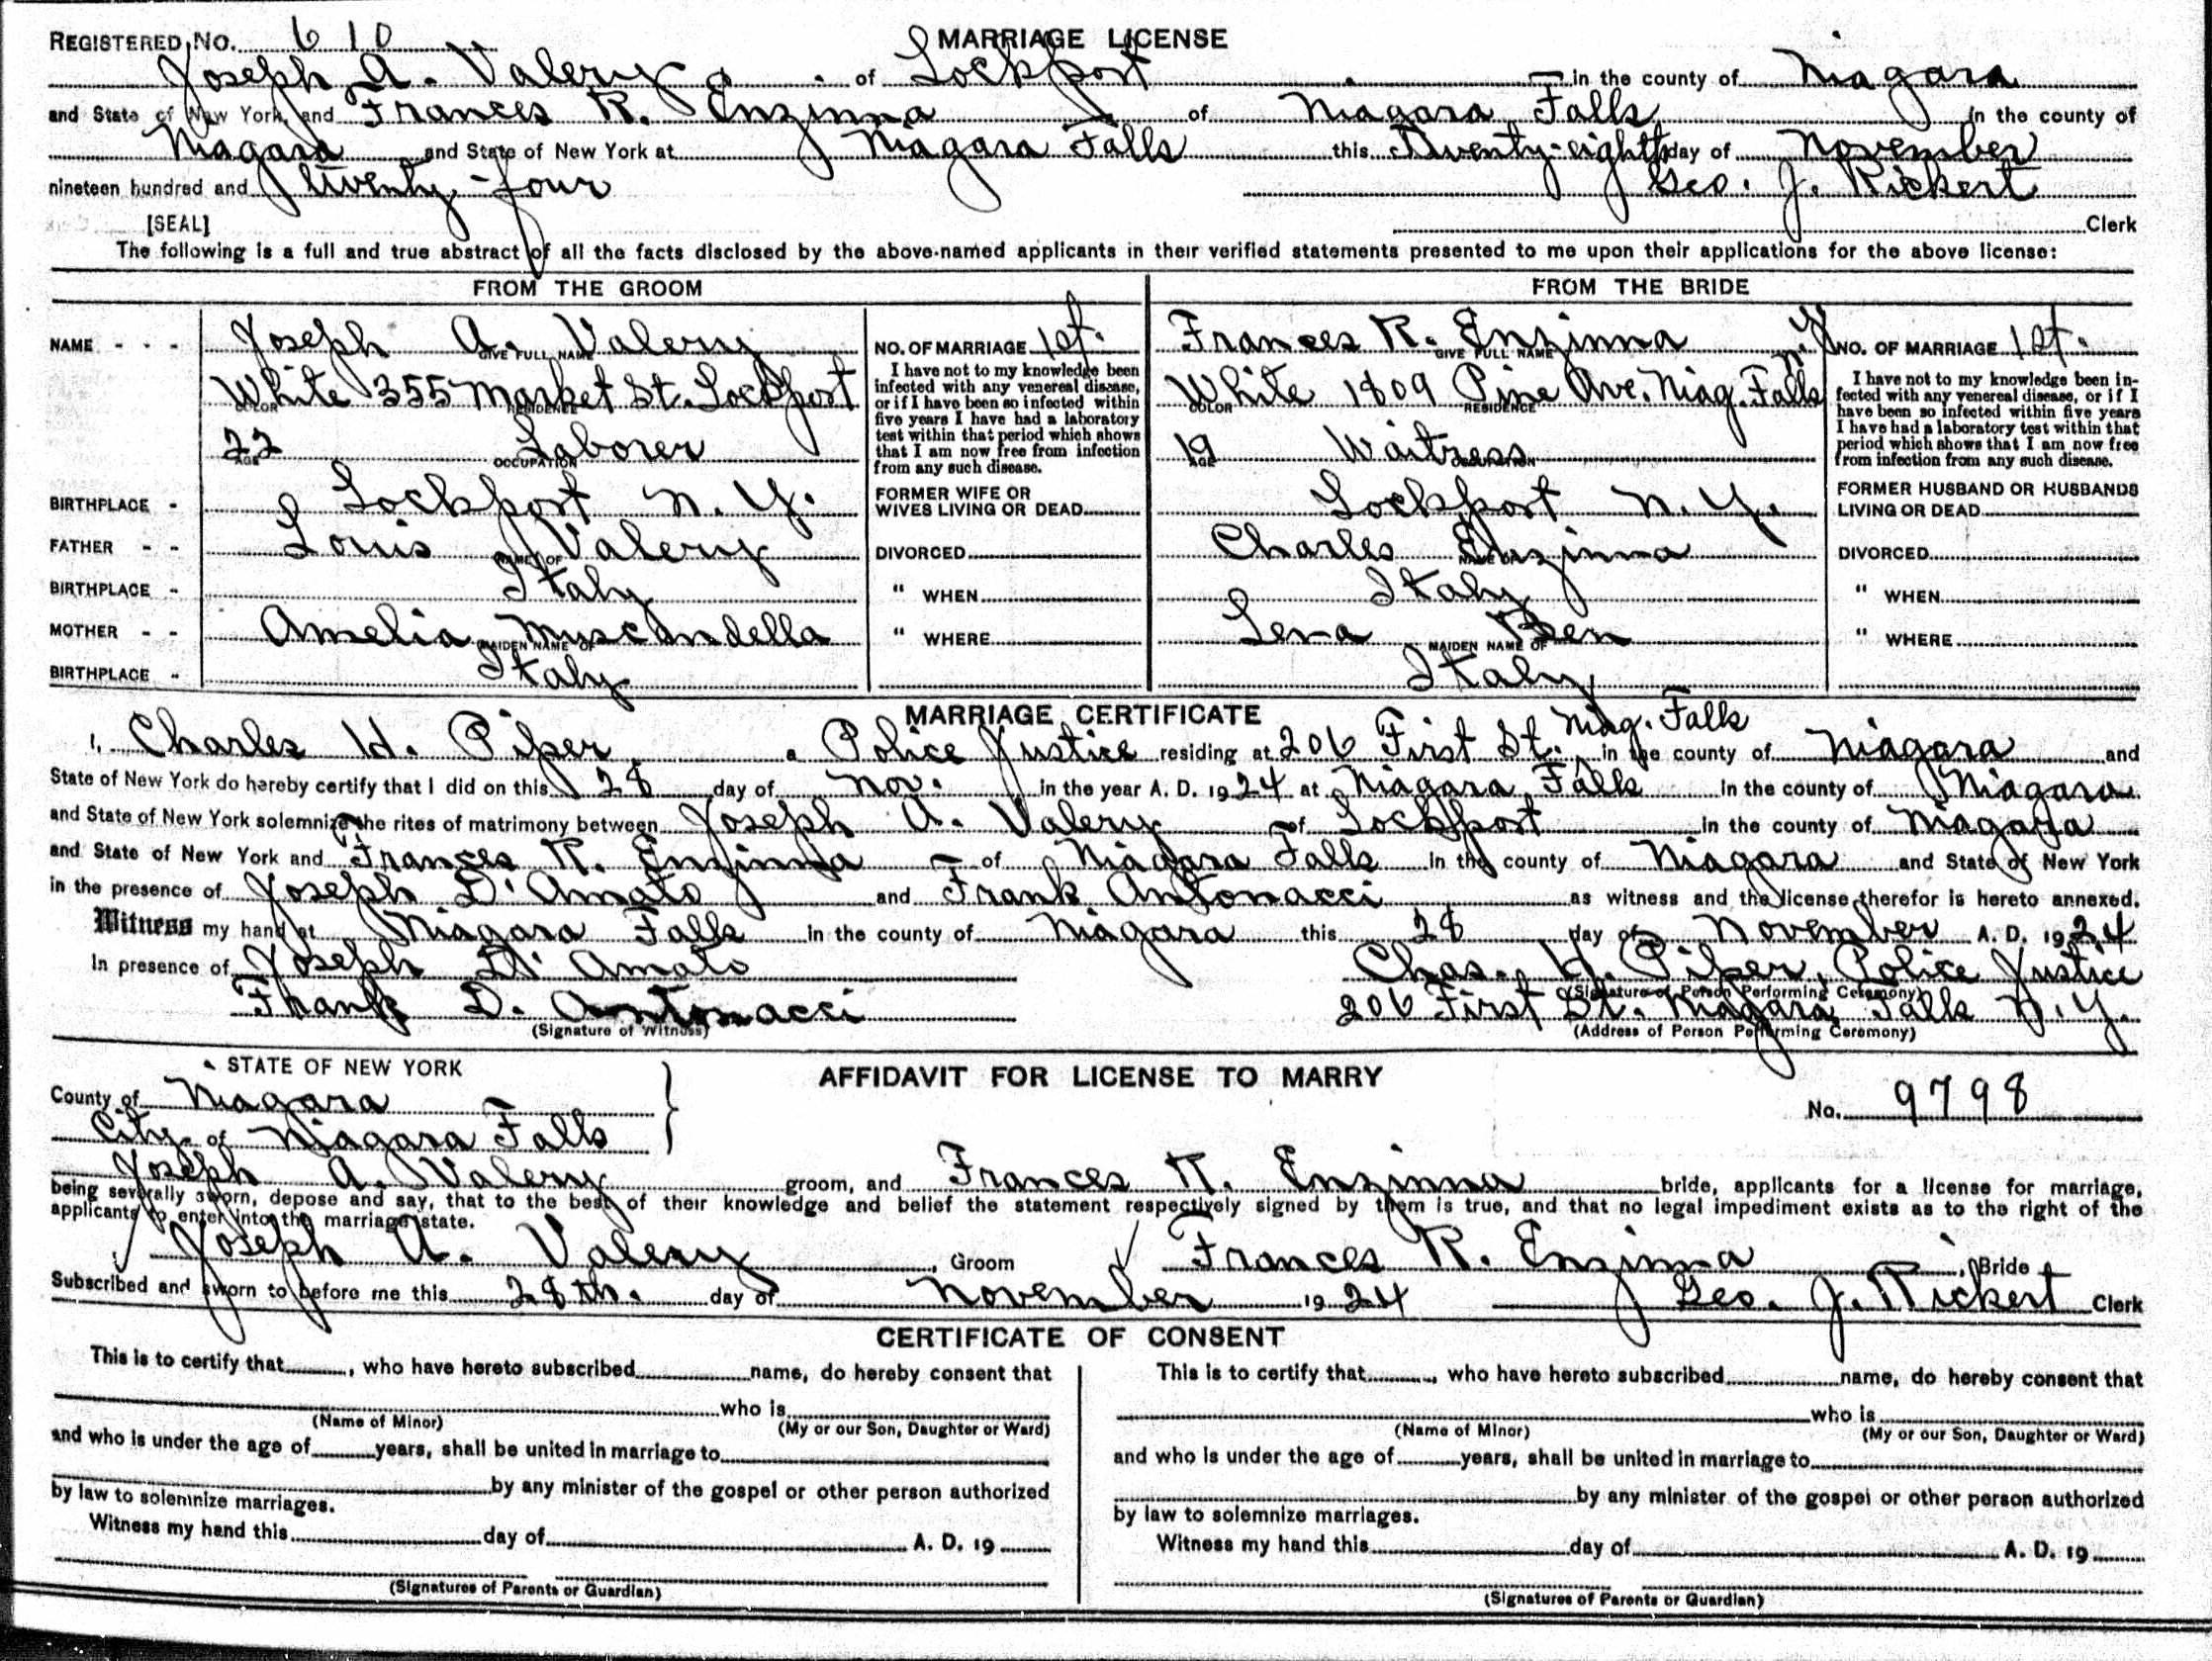 REGISTERED No. 610 MARRIAGE LICENSE
Joseph A. Valery of Lockport in the county of Niagara
and State of New York, and Frances R. Enzinna of Niagara Falls in the county of
Niagara and State of New York at Niagara Falls this Twenty-eighth day of November
nineteen hundred and twenty-four Geo. J. Rickert
[SEAL] Clerk
The following is a full and true abstract of all the facts disclosed by the above-named applicants in their verified statements presented to me upon their applications for the above license:
FROM THE GROOM
NAME - - - Joseph A. Valery
GIVE FULL NAME
White 355 Market St. Lockport
COLOR RESIDENCE
22 Laborer
AGE OCCUPATION
BIRTHPLACE - Lockport N.Y.
FATHER - - Louis Valery
NAME OF
BIRTHPLACE - Italy
MOTHER - - Amelia Muscandella
MAIDEN NAME OF
BIRTHPLACE - Italy
NO. OF MARRIAGE 1st.
I have not to my knowledge been
infected with any venereal disease,
or if I have been so infected within
five years I have had a laboratory
test within that period which shows
that I am now free from infection
from any such disease.
FORMER WIFE OR
WIVES LIVING OR DEAD
DIVORCED
" WHEN
" WHERE
FROM THE BRIDE
Frances R. Enzinna
GIVE FULL NAME
White 1809 Pine Ave. Niag. Falls N.Y.
COLOR RESIDENCE
19 Waitress
AGE OCCUPATION
Lockport N.Y.
Charles Enzinna
NAME OF
Italy
Lena Ben
MAIDEN NAME OF
Italy
NO. OF MARRIAGE 1st.
I have not to my knowledge been in-
fected with any venereal disease, or if I
have been so infected within five years
I have had a laboratory test within that
period which shows that I am now free
from infection from any such disease.
FORMER HUSBAND OR HUSBANDS
LIVING OR DEAD
DIVORCED
" WHEN
" WHERE
MARRIAGE CERTIFICATE
I, Charles H. Piper a Police Justice residing at 206 First St. Niag. Falls in the county of Niagara and
State of New York do hereby certify that I did on this 28 day of Nov. in the year A. D. 1924 at Niagara Falls in the county of Niagara
and State of New York solemnize the rites of matrimony between Joseph A. Valery of Lockport in the county of Niagara
and State of New York and Frances R. Enzinna of Niagara Falls in the county of Niagara and State of New York
in the presence of Joseph D'Amato and Frank Antonacci as witness and the license therefor is hereto annexed.
Witness my hand at Niagara Falls in the county of Niagara this 28 day of November A. D. 1924
In presence of Joseph D'Amato Chas. H. Piper, Police Justice
(Signature of Person Performing Ceremony)
Frank D. Antonacci 206 First St. Niagara Falls N.Y.
(Signature of Witness) (Address of Person Performing Ceremony)
STATE OF NEW YORK AFFIDAVIT FOR LICENSE TO MARRY
County of Niagara No. 9798
City of Niagara Falls
Joseph A. Valery groom, and Frances R. Enzinna bride, applicants for a license for marriage,
being severally sworn, depose and say, that to the best of their knowledge and belief the statement respectively signed by them is true, and that no legal impediment exists as to the right of the
applicants to enter into the marriage state.
Joseph A. Valery, Groom Frances R. Enzinna, Bride
Subscribed and sworn to before me this 28th. day of November 1924 Geo. J. Rickert Clerk
CERTIFICATE OF CONSENT
This is to certify that, who have hereto subscribed name, do hereby consent that
who is
(Name of Minor) (My or our Son, Daughter or Ward)
and who is under the age of years, shall be united in marriage to
by any minister of the gospel or other person authorized
by law to solemnize marriages.
Witness my hand this day of A. D. 19
(Signatures of Parents or Guardian)
This is to certify that, who have hereto subscribed name, do hereby consent that
who is
(Name of Minor) (My or our Son, Daughter or Ward)
and who is under the age of years, shall be united in marriage to
by any minister of the gospel or other person authorized
by law to solemnize marriages.
Witness my hand this day of A. D. 19
(Signatures of Parents or Guardian)